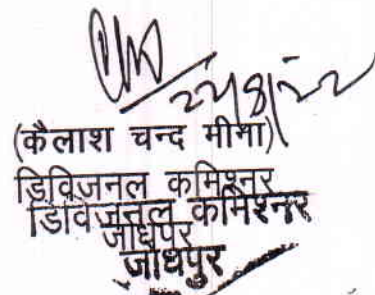 24/8/22
(कैलाश चन्द मीना)
डिविजनल कमिश्नर
डिविजनल कमिश्नर
जोधपुर
जोधपुर